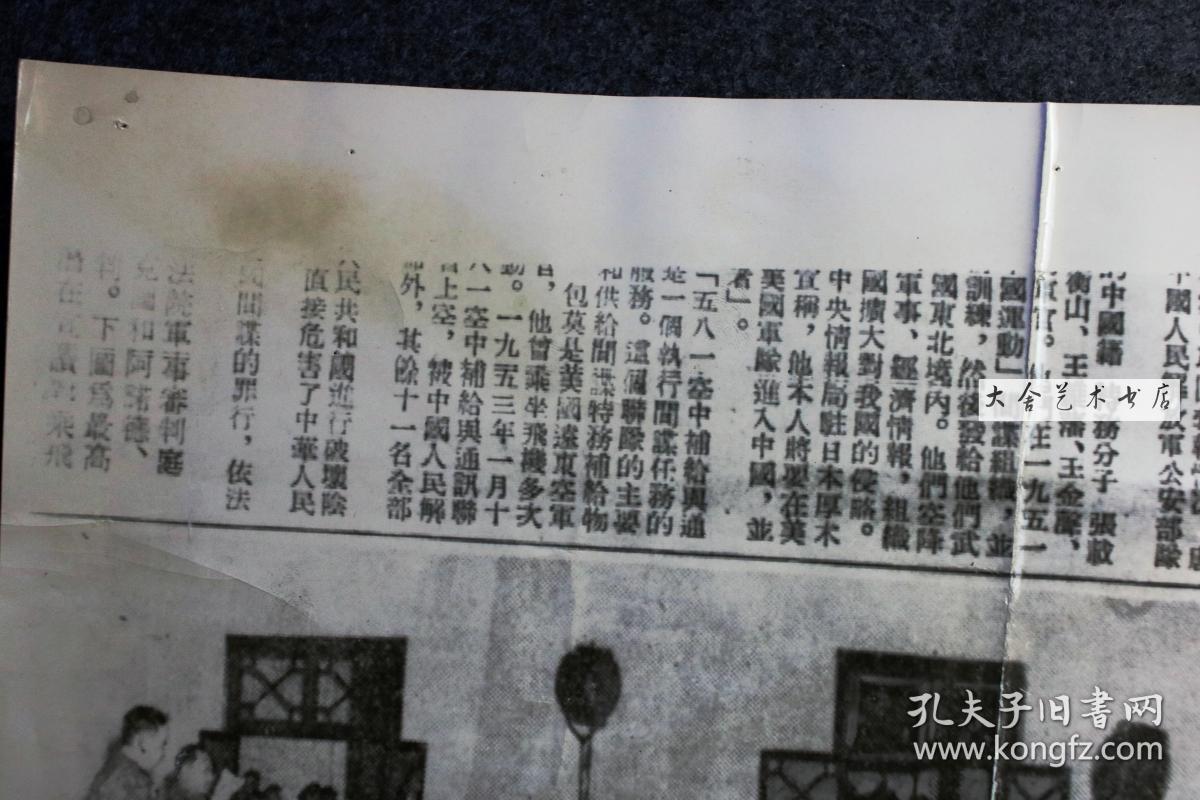 中國人民解放軍公安部隊
的中國籍
特務分子張載
衡山、王
王金聲、
在一九五一
國運動」
諜組織，並
訓練，然後發給他們武
國東北境內。他們空降
軍事、經濟情報，組織
國擴大對我國的侵略。
中央情報局駐日本厚木
宣稱，他本人將要在美
美國軍隊進入中國，並
者」。
「五八一空中補給與通
是一個執行間諜任務的
服務。這個聯隊的主要
和供給間諜特務補給物
包莫是美國遠東空軍
官，他曾乘坐飛機多次
動。一九五三年一月十
八一空中補給與通訊聯
省上空，被中國人民解
部外，其餘十一名全部
人民共和國進行破壞陰
直接危害了中華人民
民間諜的罪行，依法
法院軍事審判庭
克圖和阿諾德、
判。下圖爲最高
大舍艺术书店
孔夫子旧書网
www.kongfz.com